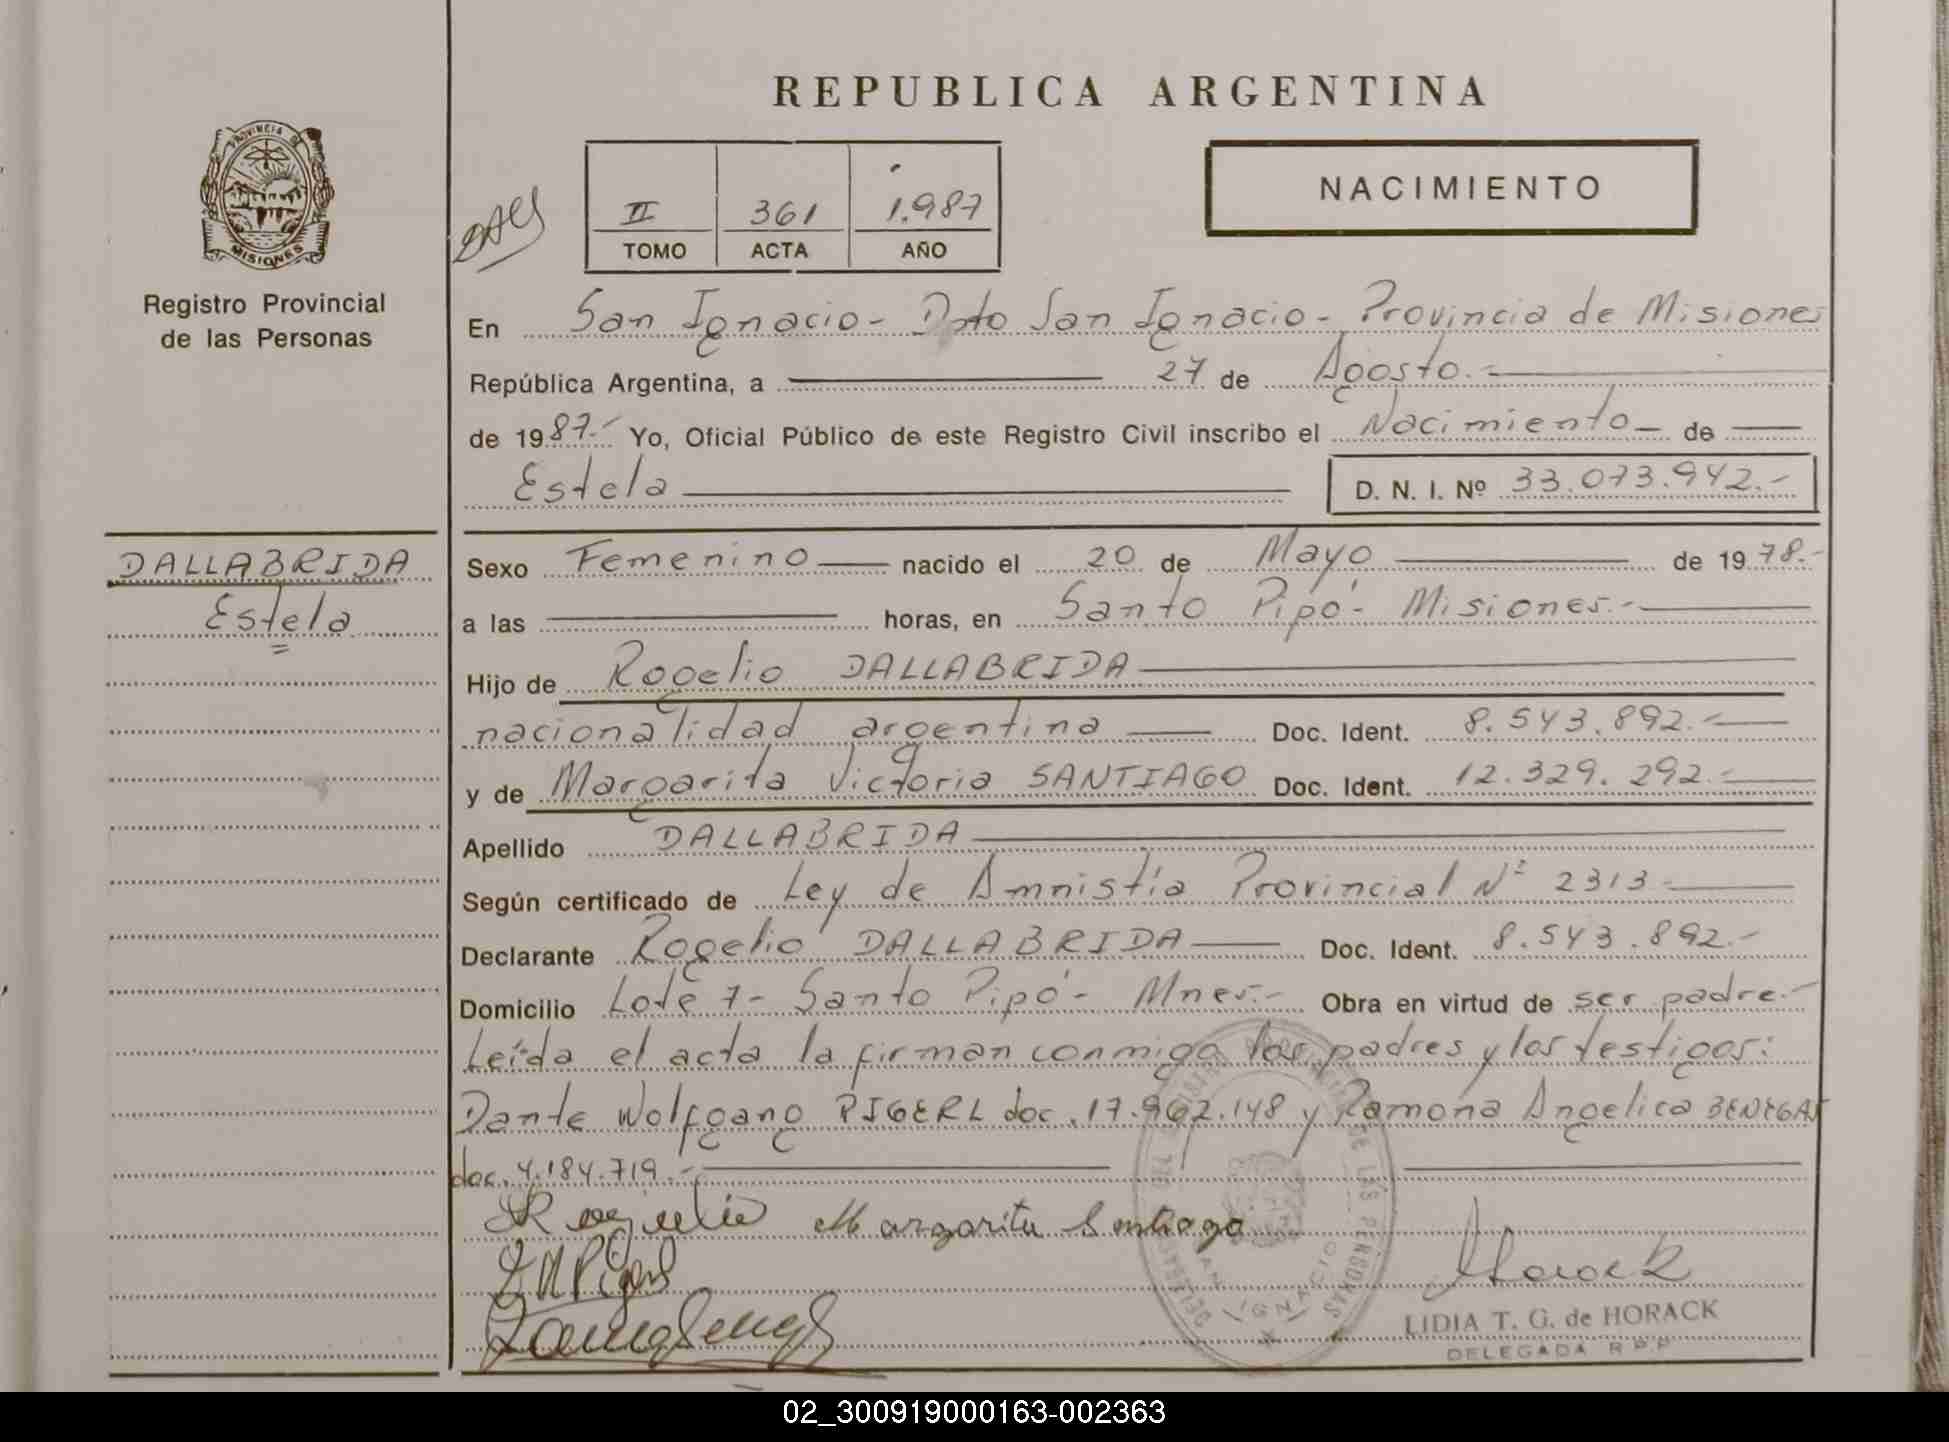 REPUBLICA ARGENTINA
PROVINCIA DE
MISIONES
Registro Provincial
de las Personas
II 361 1.987
TOMO ACTA AÑO
NACIMIENTO
En San Ignacio - Dpto San Ignacio - Provincia de Misiones
República Argentina, a 27 de Agosto.-
de 1987.- Yo, Oficial Público de este Registro Civil inscribo el Nacimiento de
Estela D. N. I. Nº 33.073.942.-
DALLABRIDA
Estela
Sexo Femenino nacido el 20 de Mayo de 1978.-
a las horas, en Santo Pipó - Misiones.-
Hijo de Rogelio DALLABRIDA
nacionalidad argentina Doc. Ident. 8.543.892.-
y de Margarita Victoria SANTIAGO Doc. Ident. 12.329.292.-
Apellido DALLABRIDA
Según certificado de Ley de Amnistía Provincial Nº 2313-
Declarante Rogelio DALLABRIDA Doc. Ident. 8.543.892.-
Domicilio Lote 7- Santo Pipó - Mnes.- Obra en virtud de ser padre.-
Leída el acta la firman conmigo los padres y los testigos:
Dante Wolfgang PIGERL doc. 17.962.148 y Ramona Angelica BENEGAS
doc. 4.184.719.-
Margarita Santiago
Horack
SAN IGNACIO
LIDIA T. G. de HORACK
DELEGADA R.P.P.
02_300919000163-002363